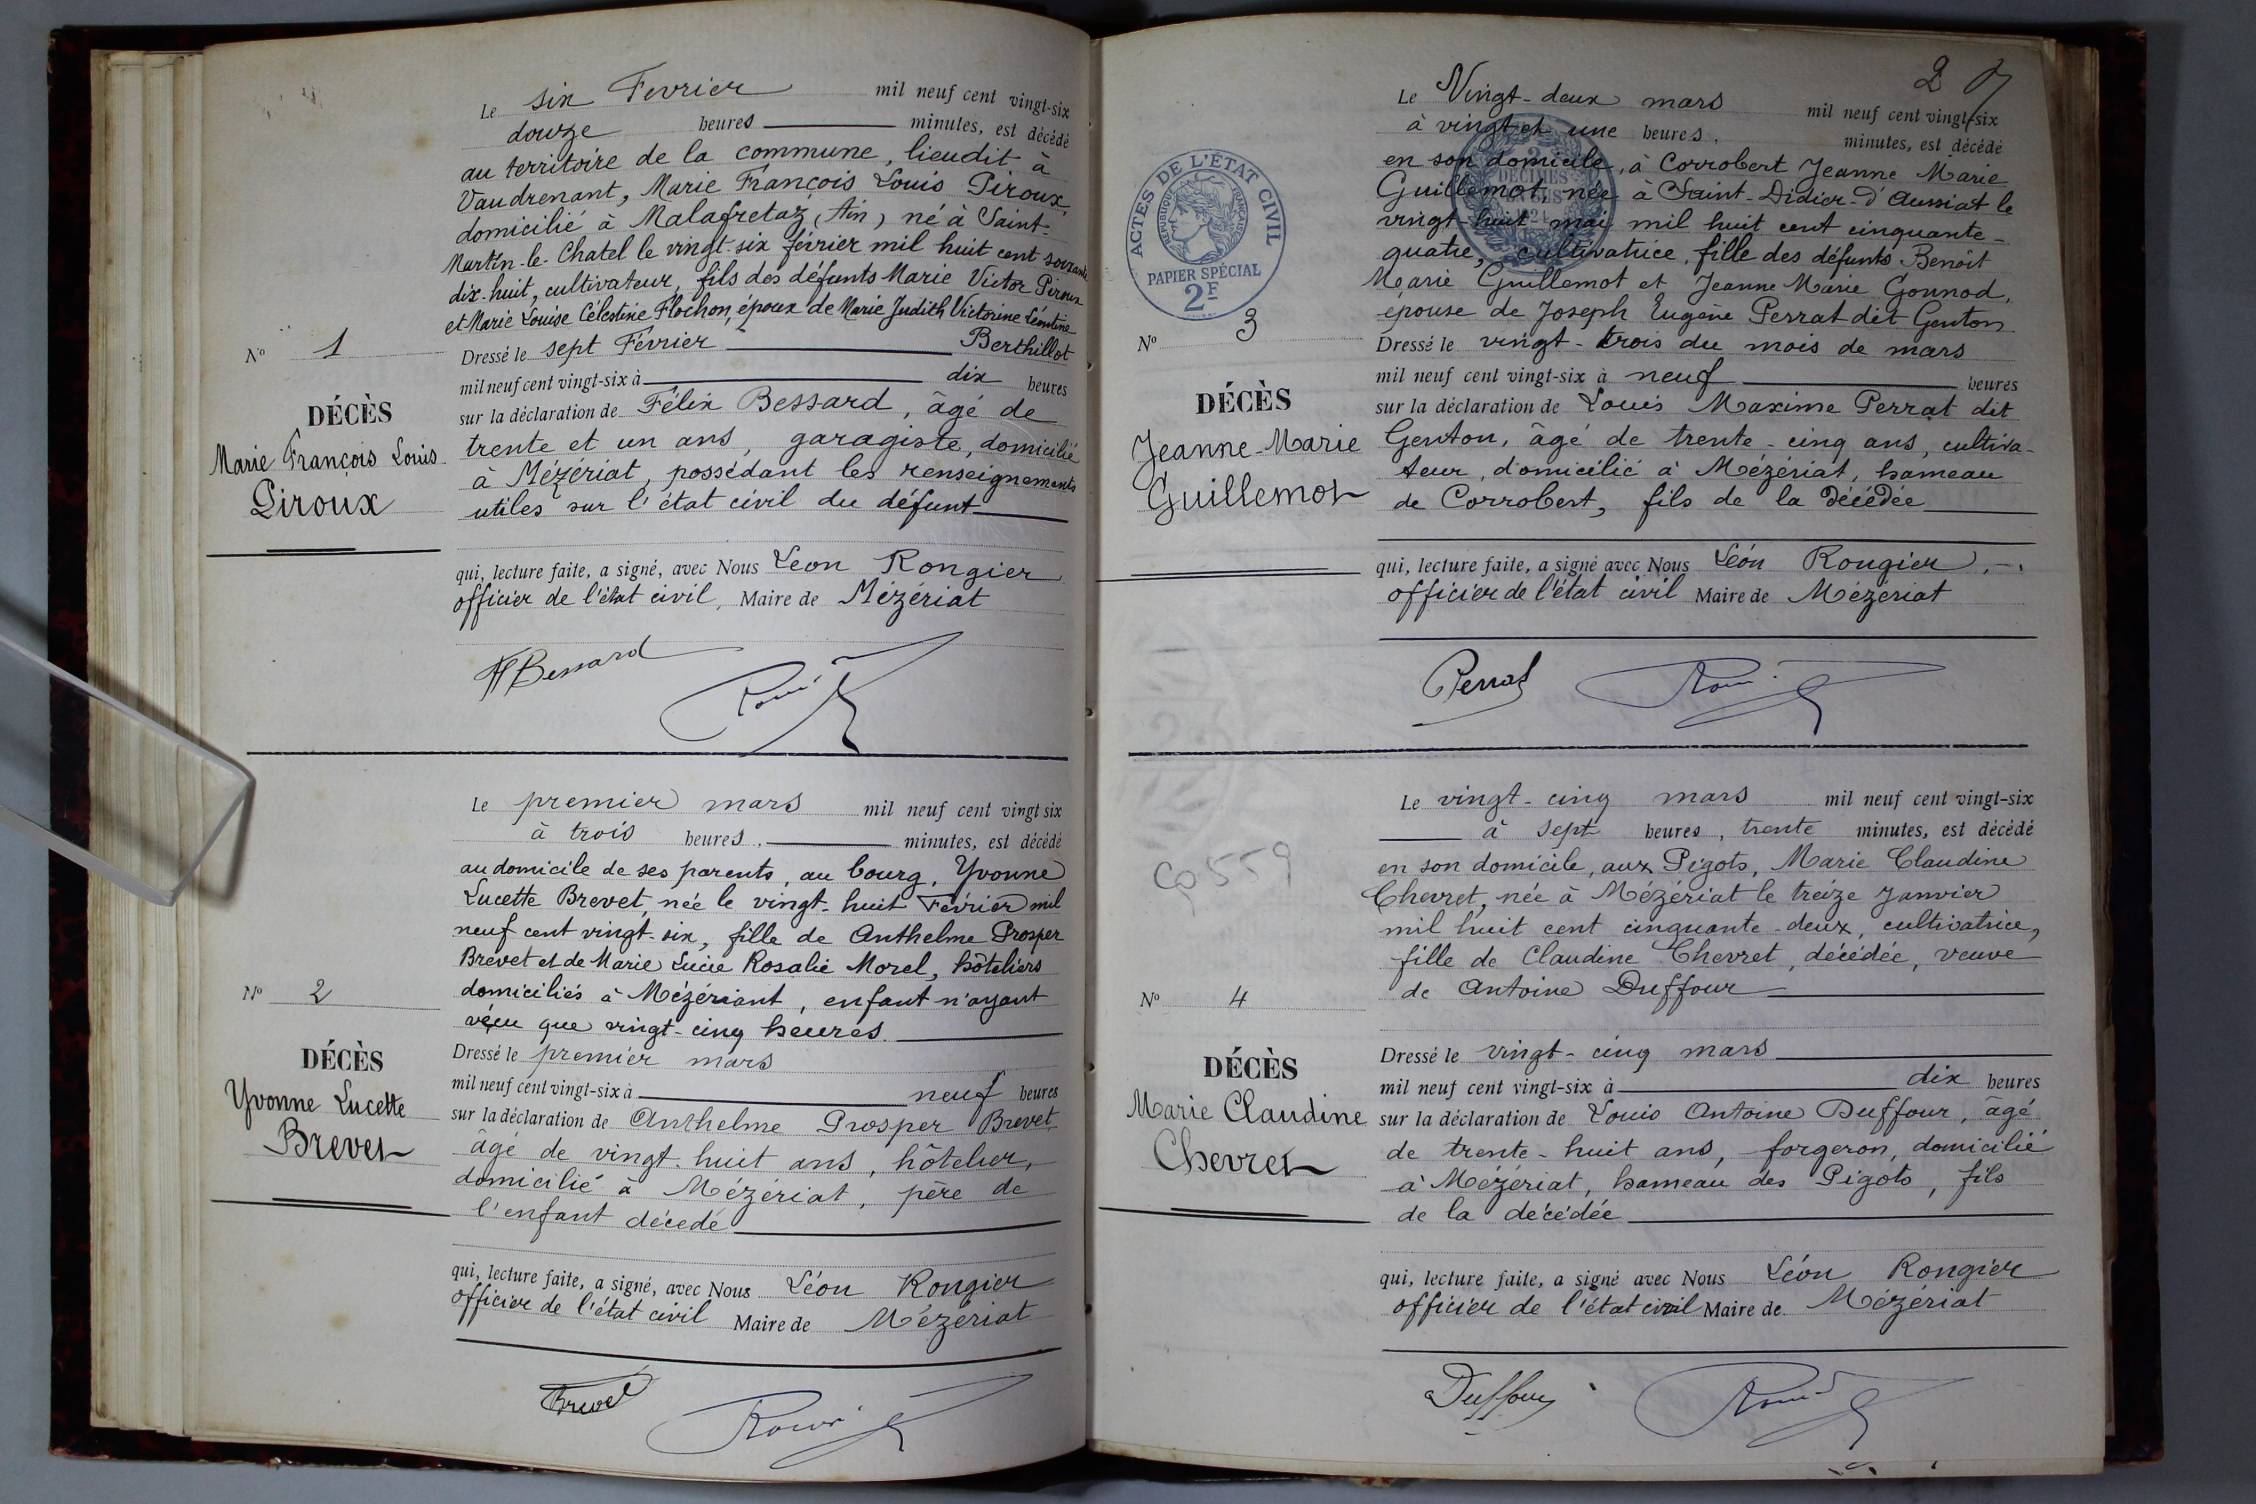 Le six Fevrier mil neuf cent vingt-six
douze heures minutes, est décédé
au territoire de la commune, lieudit à
Vaudrenant, Marie François Louis Piroux,
domicilié à Malafretaz, (Ain) né à Saint-
Martin-le-Chatel le vingt-six février mil huit cent soixante
dix-huit, cultivateur, fils des défunts Marie Victor Piroux
et Marie Louise Célestine Flochon, époux de Marie Judith Victorine Léontine
Dressé le sept Février Berthillot
mil neuf cent vingt-six à dix heures
sur la déclaration de Félix Bessard, âgé de
trente et un ans, garagiste, domicilié
à Mézériat, possédant les renseignements
utiles sur l'état civil du défunt
qui, lecture faite, a signé, avec Nous Léon Rongier
officier de l'état civil, Maire de Mézériat
N° 1
DÉCÈS
Marie François Louis
Piroux
FBessard
Le premier mars mil neuf cent vingt six
à trois heures, minutes, est décédé
au domicile de ses parents, au bourg, Yvonne
Lucette Brevet, née le vingt-huit Février mil
neuf cent vingt-six, fille de Anthelme Prosper
Brevet et de Marie Lucie Rosalie Morel, hôteliers
domiciliés à Mézériant, enfant n'ayant
vécu que vingt-cinq heures.
Dressé le premier mars
mil neuf cent vingt-six à neuf heures
sur la déclaration de Anthelme Prosper Brevet
âgé de vingt-huit ans, hôtelier,
domicilié à Mézériat, père de
l'enfant décédé
qui, lecture faite, a signé, avec Nous Léon Rongier
officier de l'état civil Maire de Mézériat
N° 2
DÉCÈS
Yvonne Lucette
Brevet
Brevet
2
Le Vingt-deux mars mil neuf cent vingt-six
à vingt et une heures, minutes, est décédé
en son domicile, à Corrobert Jeanne Marie
Guillemot, née à Saint-Didier-d'Aussiat le
vingt-huit mai mil huit cent cinquante-
quatre, cultivatrice, fille des défunts Benoît
Marie Guillemot et Jeanne Marie Gounod,
épouse de Joseph Eugène Perrat dit Genton
Dressé le vingt-trois du mois de mars
mil neuf cent vingt-six à neuf heures
sur la déclaration de Louis Maxime Perrat dit
Genton, âgé de trente-cinq ans, cultiva-
teur, domicilié à Mézériat, hameau
de Corrobert, fils de la décédée
qui, lecture faite, a signé avec Nous Léon Rougier
officier de l'état civil Maire de Mézeriat
ACTES DE L'ÉTAT CIVIL
RÉPUBLIQUE FRANÇAISE
PAPIER SPÉCIAL
2F
N° 3
DÉCÈS
Jeanne-Marie
Guillemot
Perrat
Le vingt-cinq mars mil neuf cent vingt-six
à sept heures, trente minutes, est décédé
en son domicile, aux Pigots, Marie Claudine
Chevret, née à Mézériat le treize Janvier
mil huit cent cinquante-deux, cultivatrice,
fille de Claudine Chevret, décédée, veuve
de Antoine Duffour
Dressé le vingt-cinq mars
mil neuf cent vingt-six à dix heures
sur la déclaration de Louis Antoine Duffour, âgé
de trente-huit ans, forgeron, domicilié
à Mézériat, hameau des Pigots, fils
de la décédée
qui, lecture faite, a signé avec Nous Léon Rongier
officier de l'état civil Maire de Mézériat
559
N° 4
DÉCÈS
Marie Claudine
Chevret
Duffour